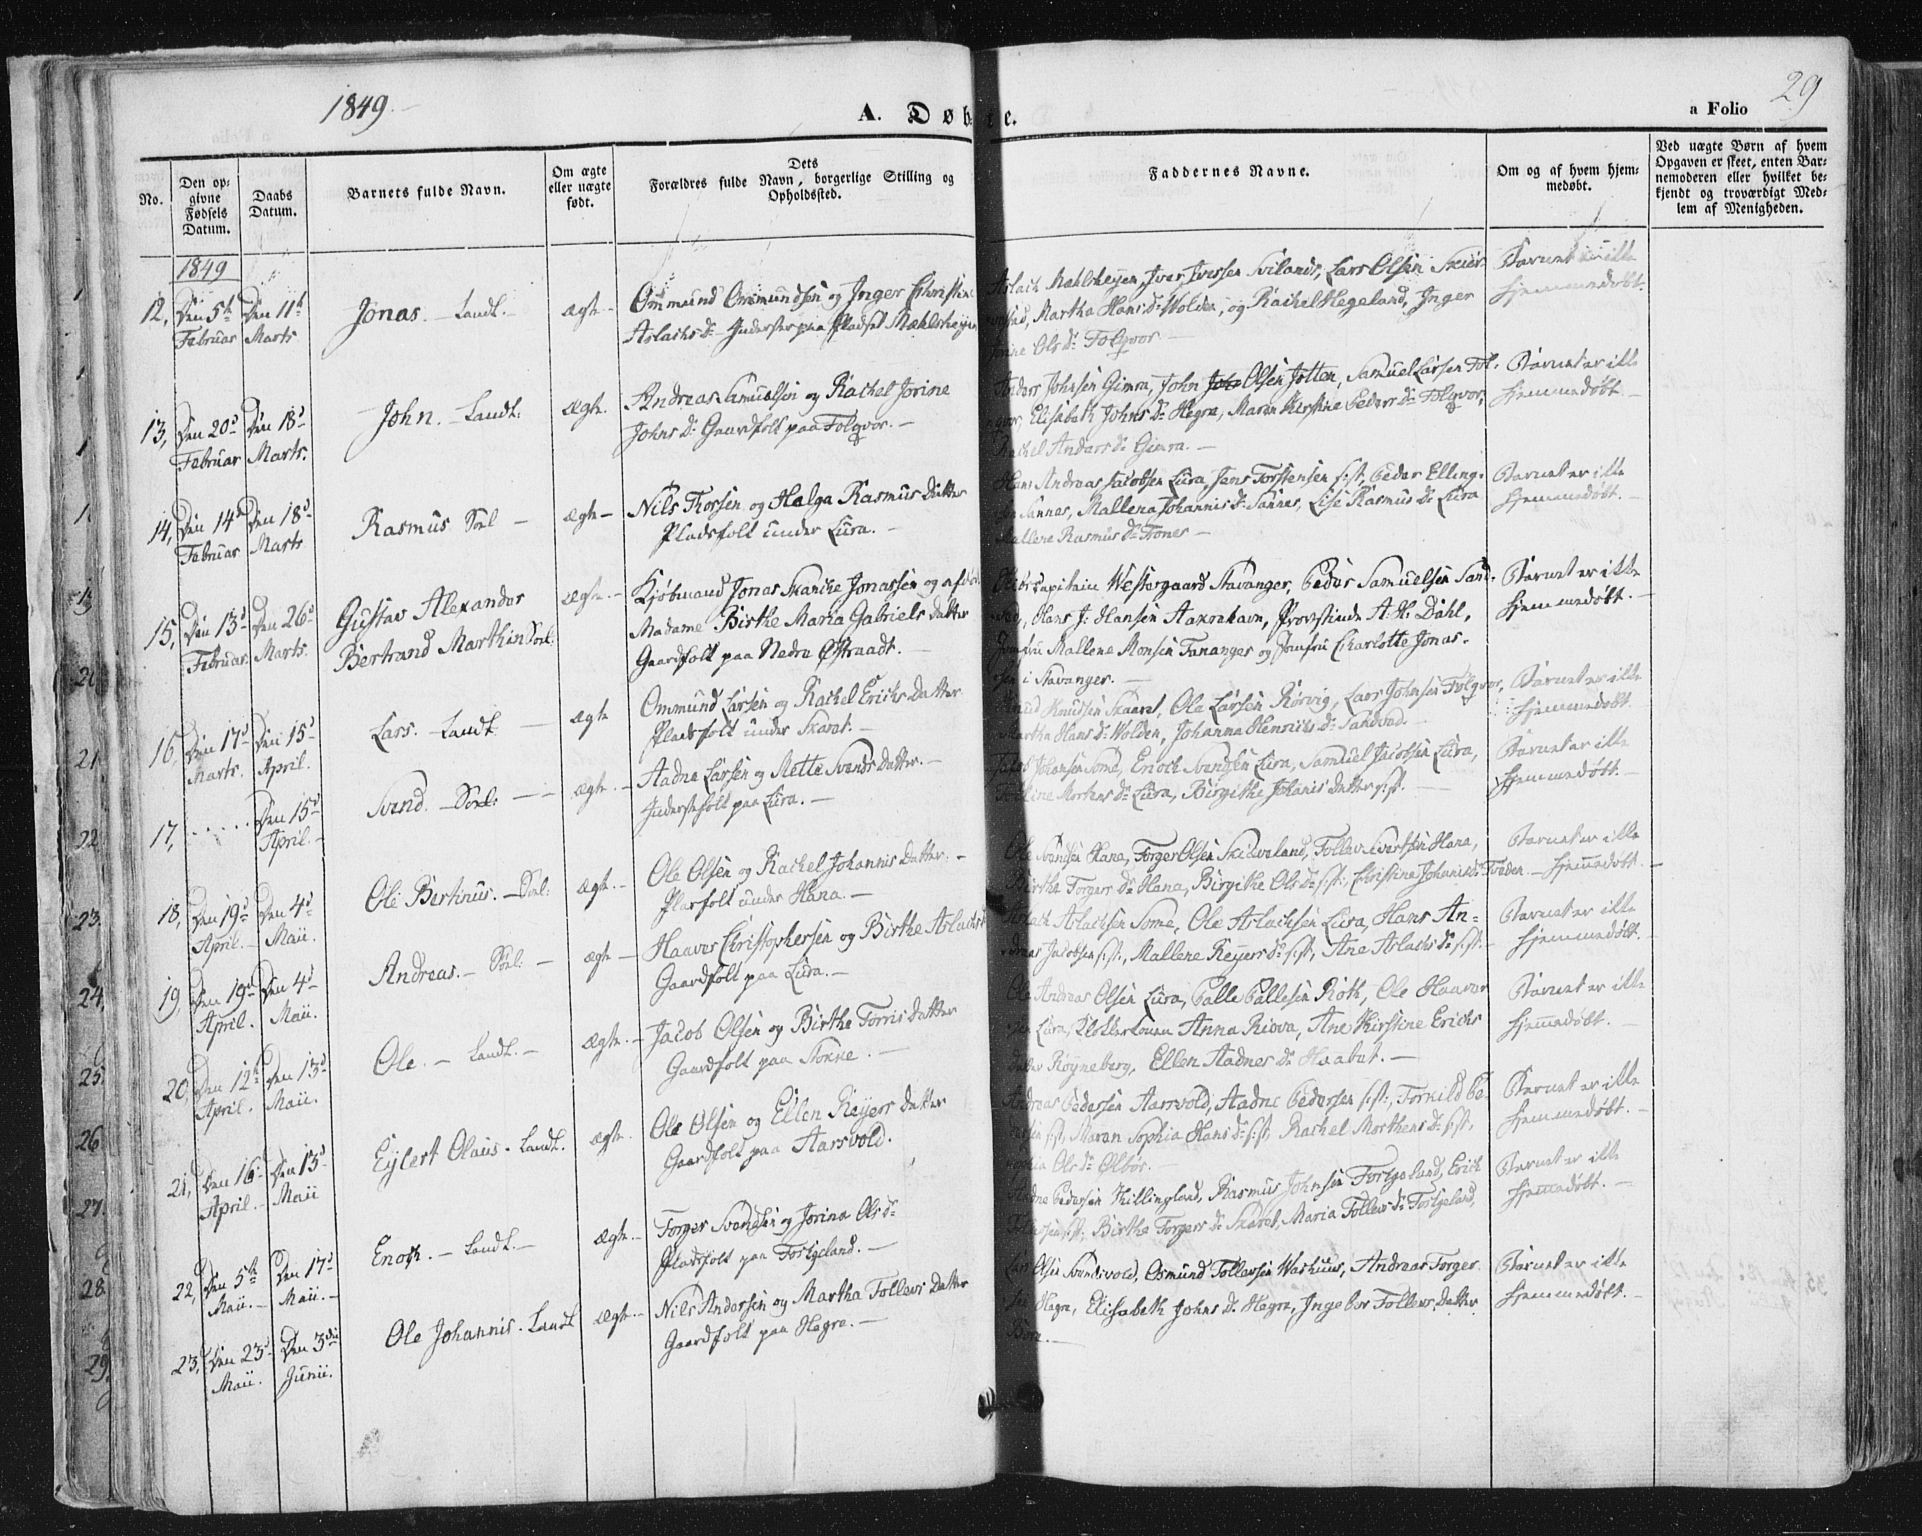 1849.
A. Døbte.
a Folio
29
No.
Den op-
givne
Fødsels
Datum.
Daabs
Datum.
Barnets fulde Navn.
Om ægte
eller uægte
født.
Dets
Forældres fulde Navn, borgerlige Stilling og
Opholdssted.
Faddernes Navne.
Om og af hvem hjem-
medøbt.
Ved uægte Børn af hvem
Opgaven er skeet, enten Bar-
nemoderen eller hvilket be-
kjendt og troværdigt Med-
lem af Menigheden.
1849
12, Den 5te Den 11te Jonas. - Landt. - Ægte - Ommund Ommundsen og Inger Christine
Februar Marts Aslachs Dr Inderster paa Pladset Mæhlehejen
Aslach Mæhlehejen, Iver Iversen Sviland, Lars Olsen Skier-
Martha Hans Dr Wolden, og Rachel Hegeland, Inger
Jorine Ols Dr Folqvor -
Barnet er ikke
hjemmedøbt.
13, Den 20de Den 18de John. - Landt: Ægte. Andreas Samuelsen og Rachel Jorine
Februar Marts. Johns Dr Gaardfolk paa Folqvor. -
Anders Johnsen Gimra, John Olsen Jotten, Samuel Larsen Fol-
qvor, Elisabeth Johns Dr Hegre, Maren Kirstine Peders Dr Folqvor,
Rachel Anders Dr Gimra. -
Barnet er ikke
hjemmedøbt. -
14, Den 14de Den 18de Rasmus Soel - Ægte - Nils Thorsen og Helga Rasmus Datter
Februar Marts Pladsfolk under Lura. -
Hans Andreas Jacobsen Lura, Jens Torstensen s:st, Peder Elling-
sen Sannes, Mallena Johannis Dr Sannes, Lise Rasmus Dr Lura
Mallene Rasmus Dr Trones -
Barnet er ikke
hjemmedøbt. -
15, Den 13de Den 26de Gustav Alexander Ægte. - Kjøbmand Jonas Skanche Jonassen og
Februar. Marts. Bertrand Marthin Soel. Madame Birthe Maria Gabriels Datter
Gaardfolk paa Nedre Østraadt. -
Westergaard Stavanger, Peder Samuelsen Sand-
ved, Hans J: Hansen Aaxenhavn, Provstinde A: H: Dahl,
Jomfru Mallene Monsen Tananger og Jomfru Charlotte Jonas-
sen i Stavanger. -
Barnet er ikke
hjemmedøbt. -
16, Den 17de Den 15de Lars. - Landt - Ægte Ommund Larsen og Rachel Erichs Datter
Marts. April. Pladsfolk under Skaret. -
Knud Knudsen Skaaret, Ole Larsen Rørvig, Lars Johnsen Folqvor,
Martha Hans Dr Wolden, Johanna Henrichs Dr Sandved. -
Barnet er ikke
hjemmedøbt.
17, Den 15de Svend. - Soel: - - Ægte. - Aadne Larsen og Mette Svends Datter. -
April. - Inderstefolk paa Lura. -
Johansen Some, Enoch Svendsen Lura, Samuel Jacobsen Lura,
Morthens Dr Lura, Birgithe Johanis Datter s:st. -
Barnet er ikke
hjemmedøbt. -
18, Den 19de Den 4de Ole Bertinus. - Soel: Ægte. - Ole Olsen og Rachel Johannis Datter. -
April. Maii. under Hana. -
Ole Svendsen Hana, Torger Olsen Skilveland, Tollev Hana,
Birthe Torgers Dr Hana, Birgithe Ols Dr s:st: Christine Johanis Dr -
Barnet er ikke
hjemmedøbt. -
19, Den 19de Den 4de Andreas. - Soel: - Ægte - Haaver Christophersen og Birthe Aslachs
April. Maii. Gaardfolk paa Lura. -
Aslach Aslachsen Some, Ole Aslachsen Lura, Hans An-
dreas Jacobsen s:st:, Mallene Reyers Dr s:st, Ane Aslachs Dr s:st: -
Barnet er ikke
hjemmedøbt. -
20, Den 12te Den 13de Ole. - Landt. - Ægte. - Jacob Olsen og Birthe Torris Datter
April. Maii. Gaardfolk paa Stokke. -
Ole Andreas Olsen Lura, Palle Pallesen Roth, Ole Haaver
sen Lura, Anna Riova, Ane Kirstine Erichs
Datter Røyneberg, Ellen Aadnes Dr Haabet. -
Barnet er ikke
hjemmedøbt. -
21, Den 16de Den 13de Eylert Olaus. - Landt. Ægte. Ole Olsen og Ellen Reyers Datter
April. - Maii Gaardfolk paa Aarsvold.
Andreas Pedersen Aarsvold, Aadne Pedersen s:st:, Tornild Pe-
dersen s:st, Maren Sophia Hans Dr s:st, Rachel Morthens Dr s:st,
Ols Dr Ølbør. -
Barnet er ikke
hjemmedøbt. -
22, Den 5te Den 17de Enoch. - Landt. - Ægte. - Torger Svendsen og Jorina Ols Dr
Maii. - Maii. - Pladsfolk paa Fosgeland. -
Aadne Pedersen Killingland, Rasmus Johnsen Fosgeland, Erich
s:st: Birthe Torgers Dr Skaret, Maria Tollevs Dr Fosgeland,
Barnet er ikke
hjemmedøbt. -
23, Den 23de Den 3die Ole Johannis. - Landt Ægte. - Nils Andersen og Martha Tollevs Datter
Maii. Junii. Gaardfolk paa Hegre. -
Lars Olsen Svendsvold, Osmund Tollevsen Washuus, Andreas Torger-
sen Hegre, Elisabeth Johns Dr Hegre, Ingebor Tollevs Datter
Bore. -
Barnet er ikke
hjemmedøbt. -
21.
22
23.
24,
25.
26
27.
28.
29.